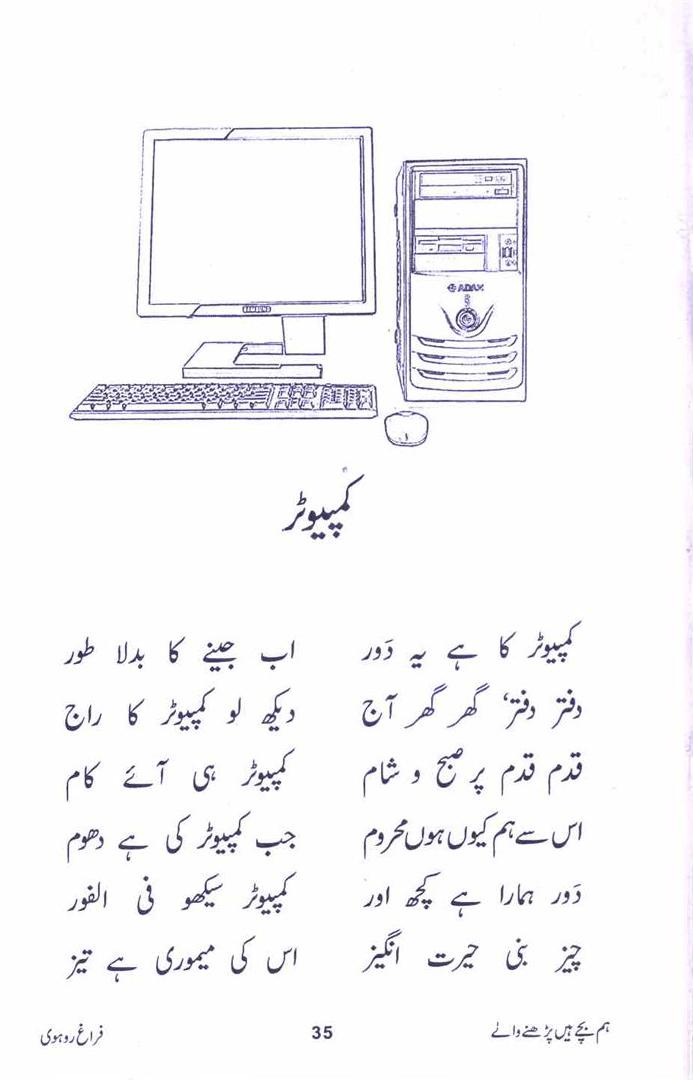 ADAX
کمپیوٹر
کمپیوٹر کا ہے یہ دَور اب جینے کا بدلا طور
دفتر دفتر، گھر گھر آج دیکھ لو کمپیوٹر کا راج
قدم قدم پر صبح و شام کمپیوٹر ہی آئے کام
اس سے ہم کیوں ہوں محروم جب کمپیوٹر کی ہے دھوم
دَور ہمارا ہے کچھ اور کمپیوٹر سیکھو فی الفور
چیز بنی حیرت انگیز اس کی میموری ہے تیز
ہم بچے ہیں پڑھنے والے 35 فراغ روہوی